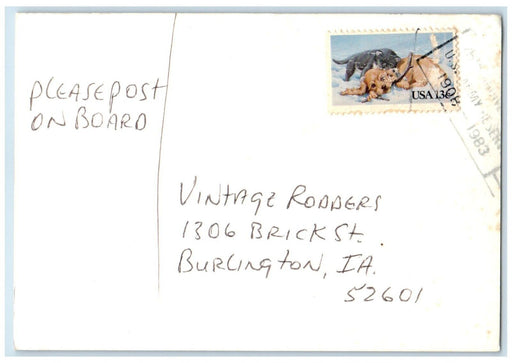 PLEASE POST
ON BOARD
USA 13c
1983
VINTAGE RODDERS
1306 BRICK St.
BURLINGTON, IA.
52601